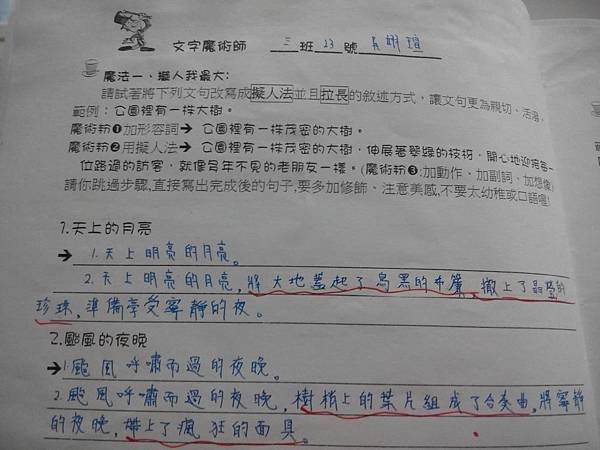 文字魔術師 三 班 23 號
魔法一、擬人我最大:
請試著將下列文句改寫成擬人法並且拉長的敘述方式，讓文句更為親切、活潑，
範例：公園裡有一棵大樹。
魔術粉❶加形容詞→ 公園裡有一棵茂密的大樹。
魔術粉❷用擬人法→ 公園裡有一棵茂密的大樹，伸展著翠綠的枝枒，開心地迎接每一
位路過的訪客，就像多年不見的老朋友一樣。(魔術粉❸:加動作、加副詞、加想像)
請你跳過步驟,直接寫出完成後的句子,要多加修飾、注意美感,不要太幼稚或口語喔!
1.天上的月亮
→ 1.天上明亮的月亮。
2.天上明亮的月亮,將大地蓋起了烏黑的布簾,撒上了晶瑩的
珍珠,準備享受寧靜的夜。
2.颱風的夜晚
→1.颱風呼嘯而過的夜晚。
2.颱風呼嘯而過的夜晚,樹梢上的葉片組成了合奏曲,將寧靜
的夜晚,戴上了瘋狂的面具。